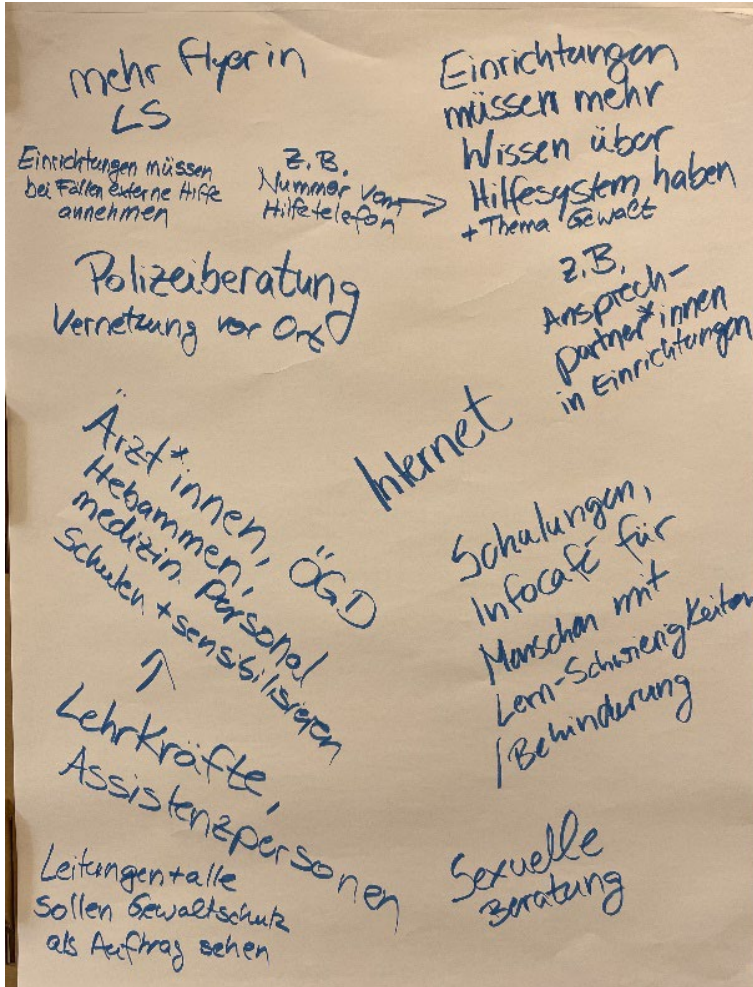 mehr Flyer in
LS
Einrichtungen müssen
bei Fällen externe Hilfe
annehmen
z.B.
Nummer vom
Hilfetelefon
→
Einrichtungen
müssen mehr
Wissen über
Hilfesystem haben
+ Thema Gewalt
z.B.
Ansprech-
partner*innen
in Einrichtungen
Polizeiberatung
Vernetzung vor Ort
Internet
Ärzt*innen, ÖGD
Hebammen,
medizin. Personal
schulen + sensibilisieren
↑
Lehrkräfte,
Assistenzpersonen
Schulungen,
Infocafé für
Menschen mit
Lern-Schwierigkeiten
/Behinderung
Leitungen + alle
sollen Gewaltschutz
als Auftrag sehen
Sexuelle
Beratung